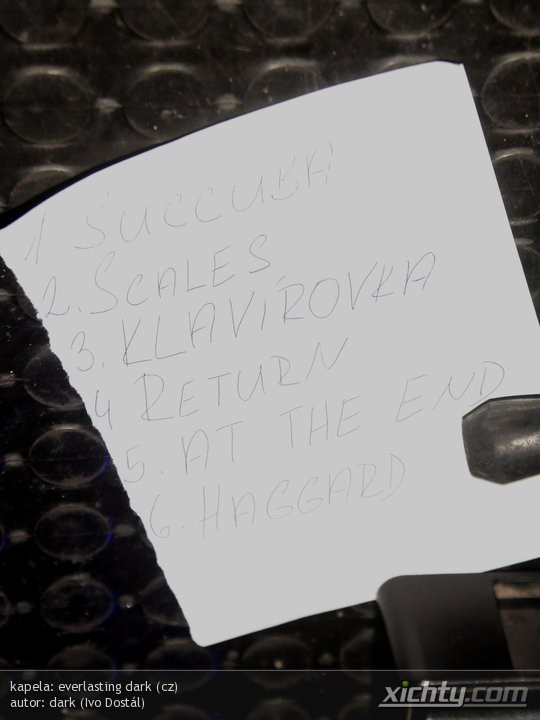 1. SUCCUBA
2. SCALES
3. KLAVÍROVKA
4. RETURN
5. AT THE END
6. HAGGARD
kapela: everlasting dark (cz)
autor: dark (Ivo Dostál)
xichty.com